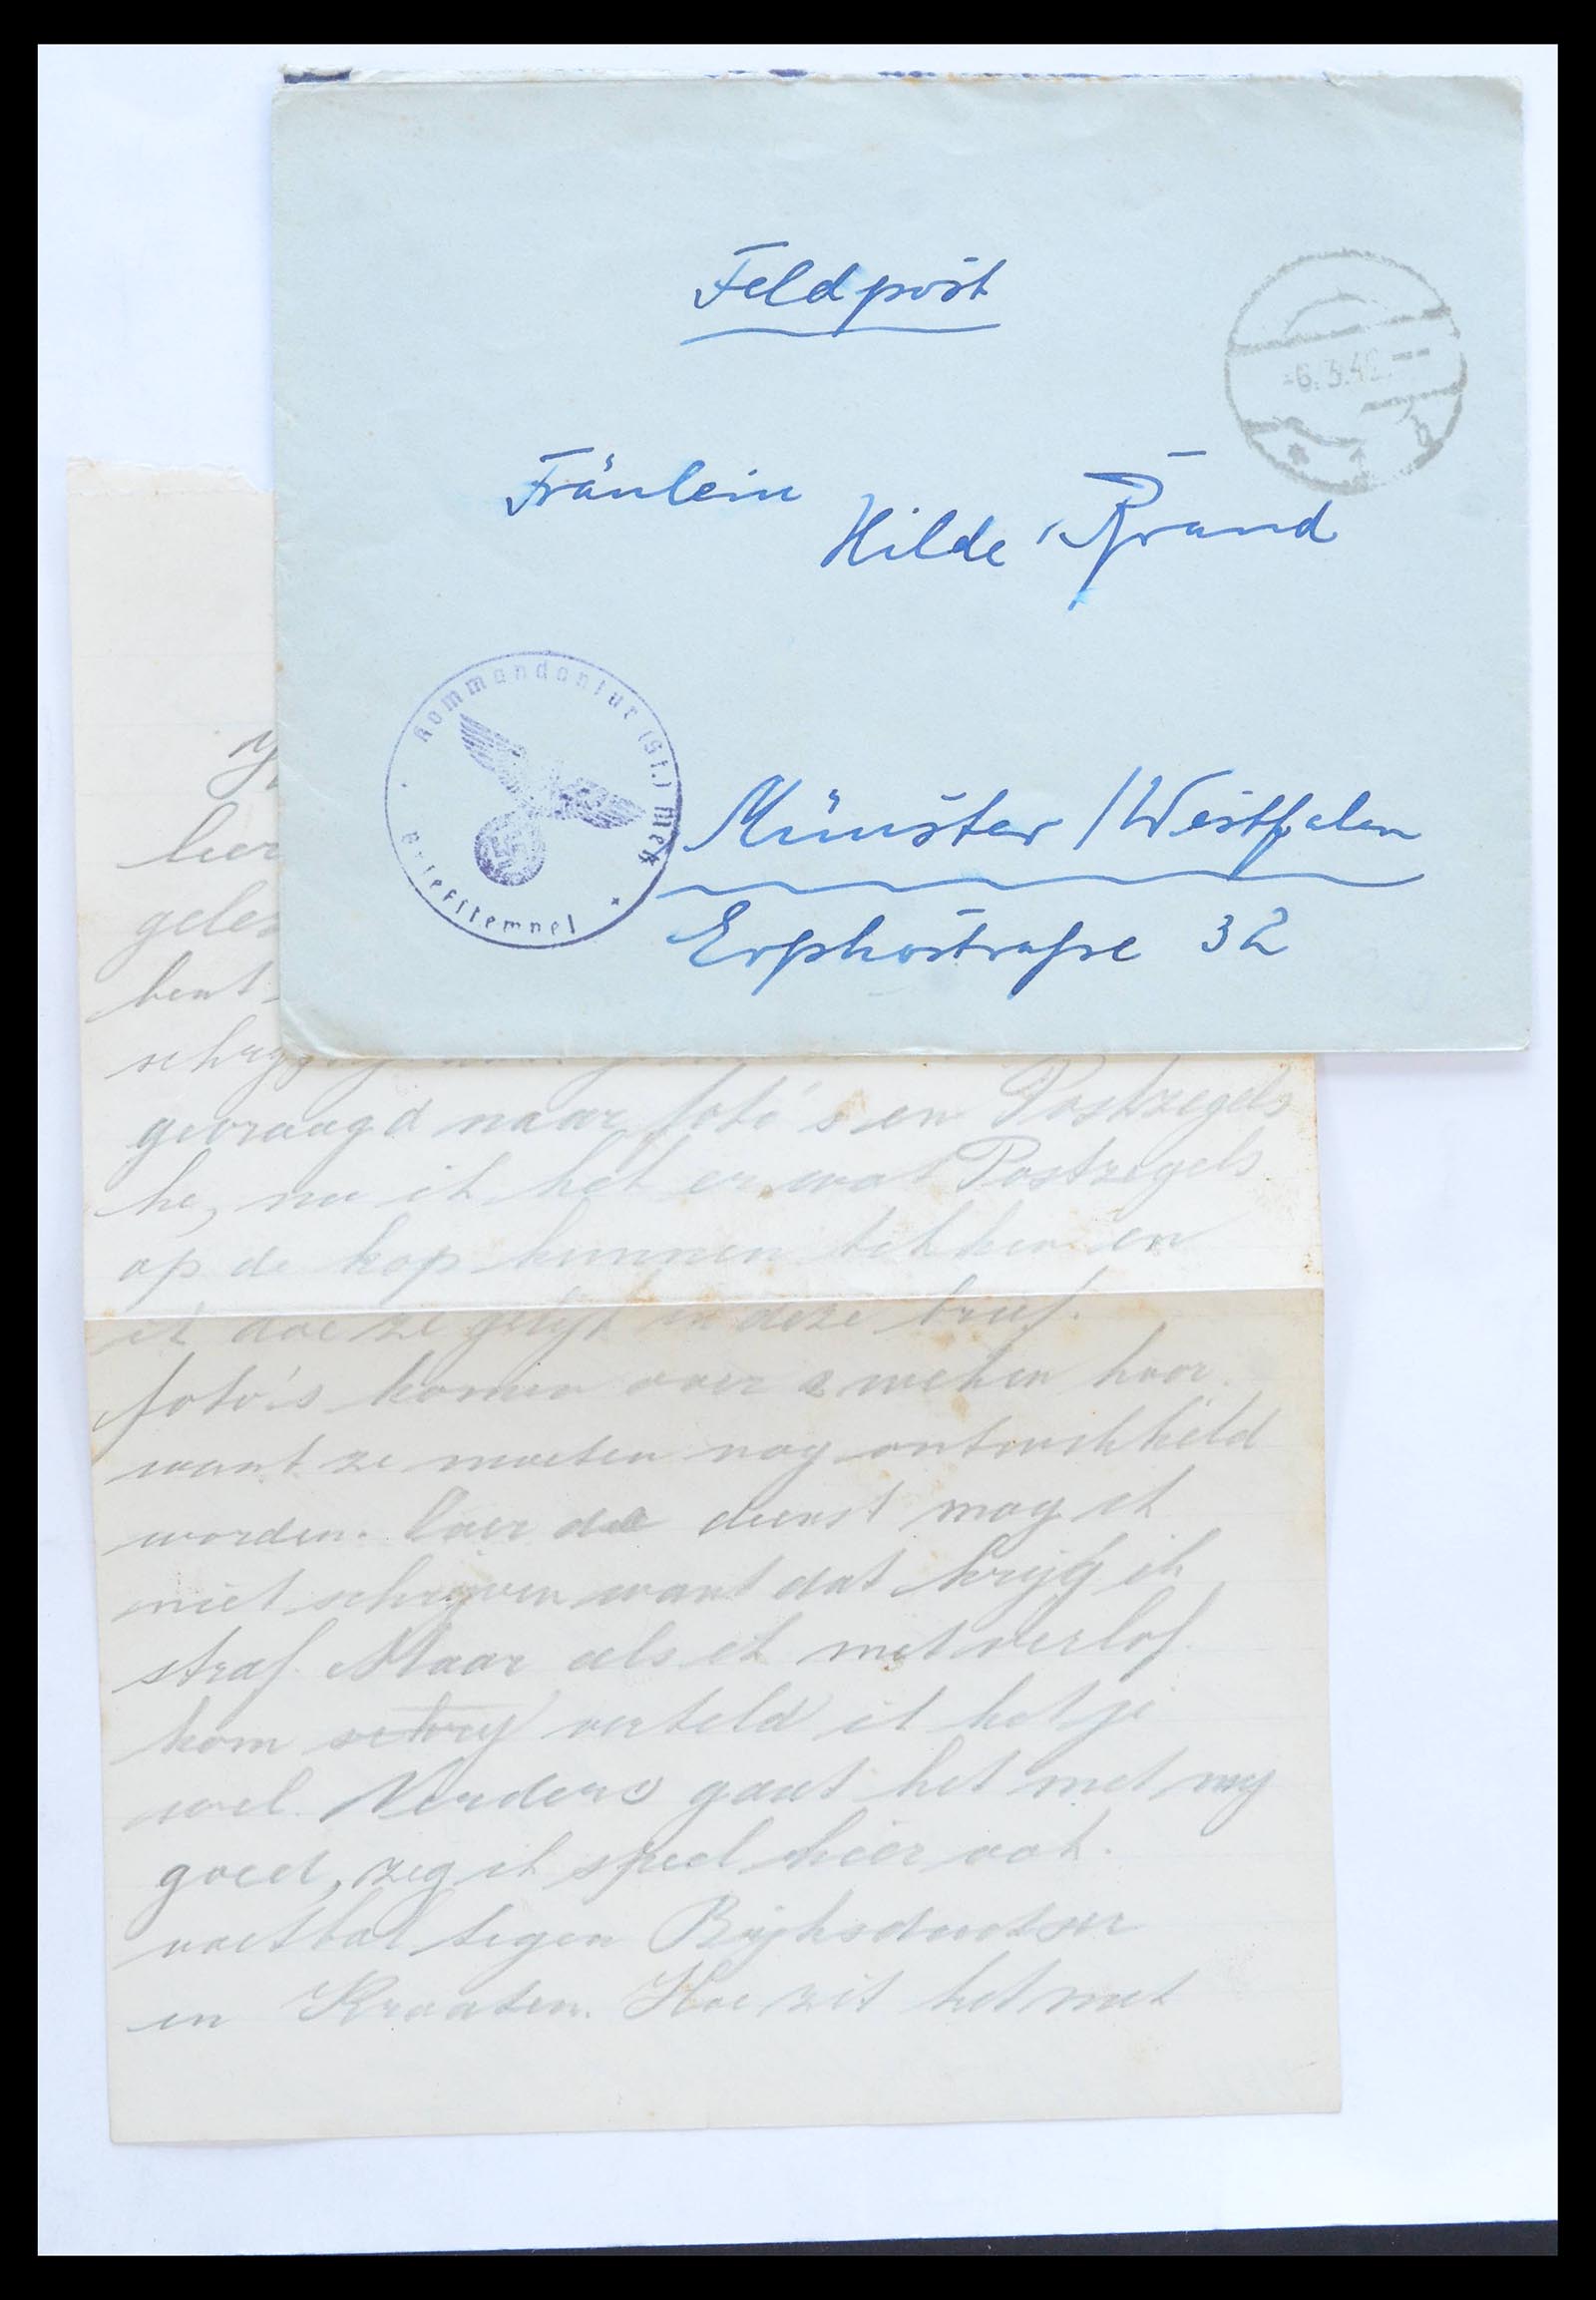 Feldpost
-6.3.42.--
Fräulein
Hilde Brand
Kommandantur (St.) Metz
Briefstempel
Münster / Westfalen
Erphostraße 32
gelez
bent
gevraagd naar foto's en Postzegels
he, nu ik heb er wat Postzegels
op de kop kunnen tikken en
ik doe ze gelijk in deze brief.
foto's komen over 2 weken hoor.
want ze moeten nog ontwikkeld
worden. Over de dienst mag ik
niet schrijven want dat krijg ik
straf. Maar als ik met verlof
kom verteld ik het je
wel. Verders gaat het met mij
goed, zeg ik speel hier ook.
voetbal tegen Rijksduitser
en Kroaten. Hoe zit het met